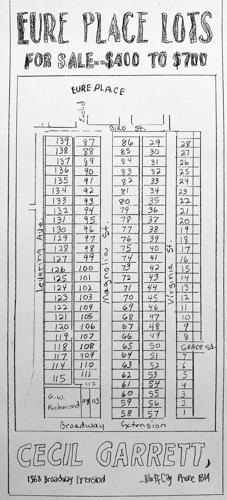 EURE PLACE LOTS
FOR SALE--$400 TO $700
EURE PLACE
Euclid
Biro St.
139 87 86 29 28
138 88 85 30 27
137 89 84 31 26
136 90 83 32 25
135 91 82 33 24
134 92 81 34 23
133 93 80 35 22
132 94 79 36 21
131 95 78 37 20
130 96 77 38 19
129 97 76 39 18
128 98 75 40 17
127 99 74 41 16
126 100 73 42 15
125 101 72 43 14
124 102 71 44 13
123 103 70 45 12
122 104 69 46 11
121 105 68 47 10
120 106 67 48 9
119 107 66 49 8
118 108 65 50 GRACE St.
117 109 64 51 7
114 110 63 52 6
115 111 62 53 5
112 61 54 4
G.W. Richmond 113 60 55 3
59 56 2
58 57 1
Ave.
Magnolia St.
Virginia St.
Broadway Extension
CECIL GARRETT,
1363 Broadway Extension ...Bluff City Phone 1814